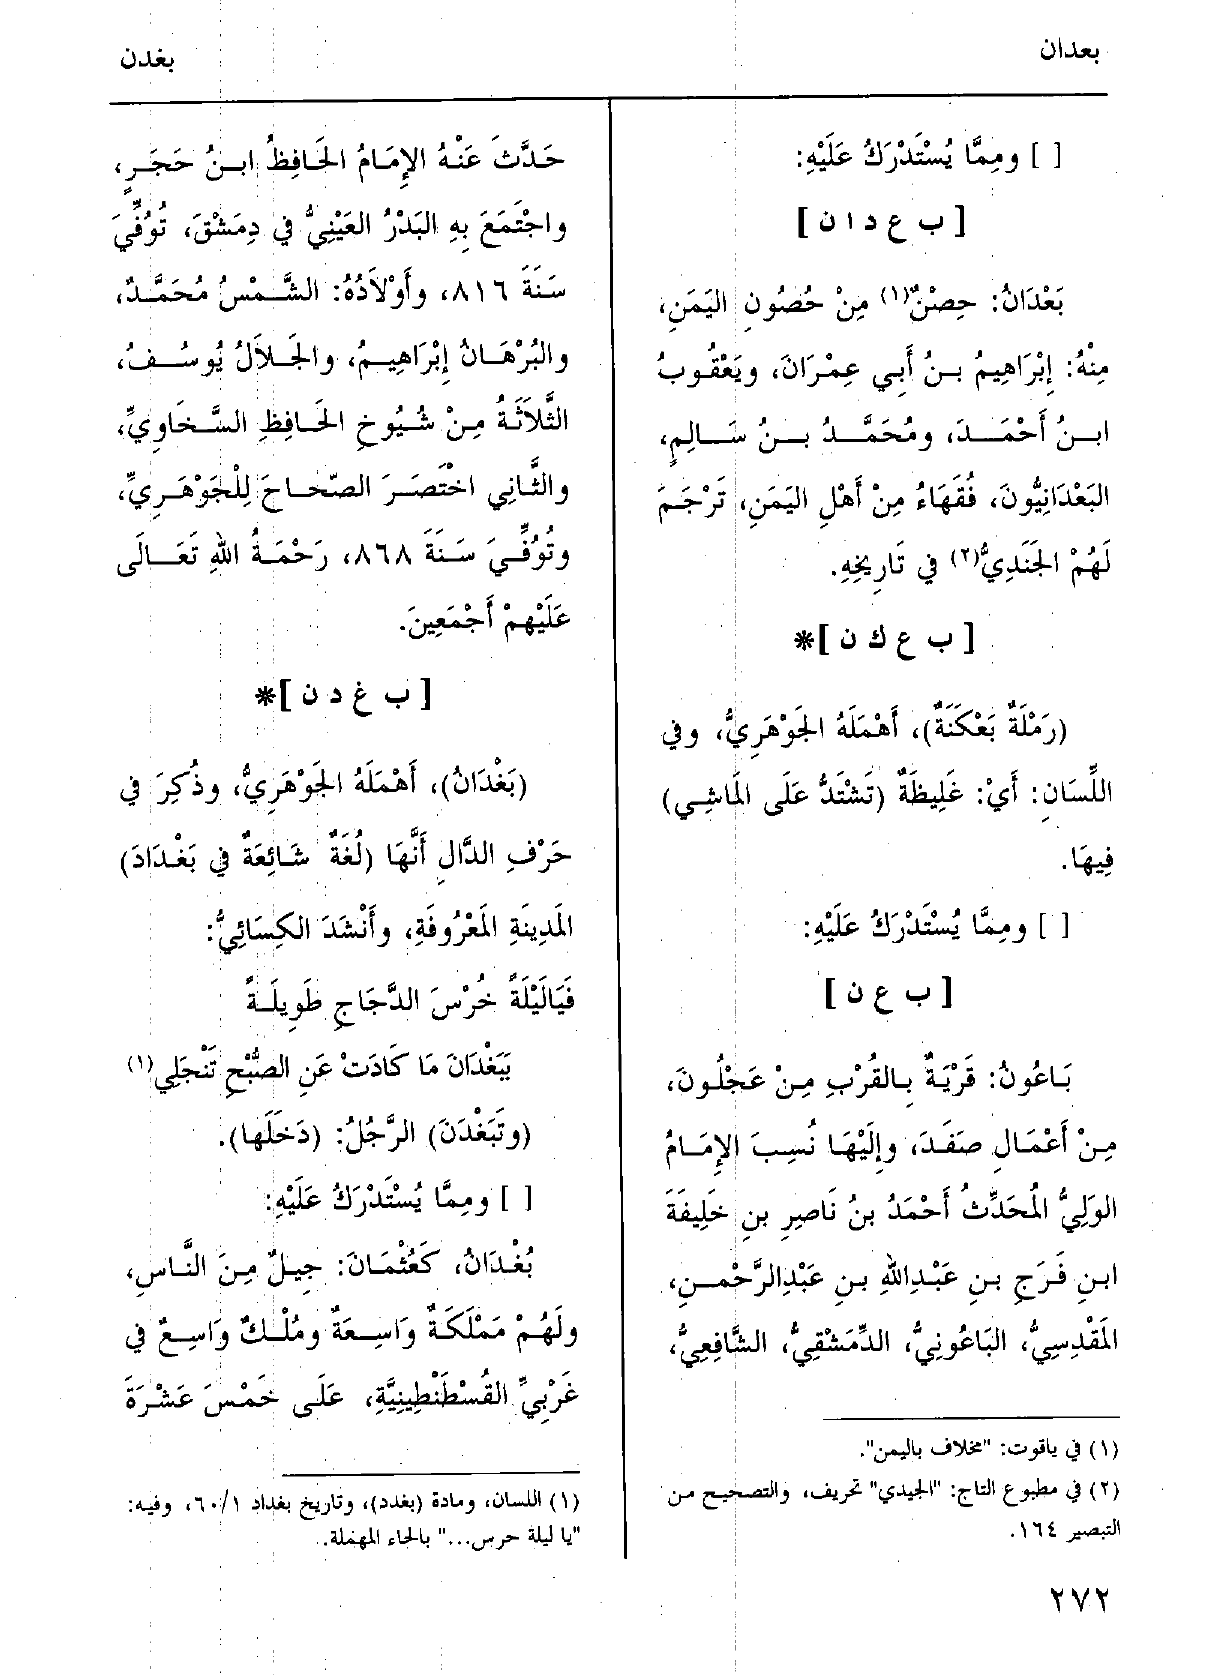 بعدان
بغدن
[ ] ومِمَّا يُسْتَدْرَكُ عَلَيْهِ:
[ ب ع د ا ن ]
بَعْدَانُ: حِصْنٌ(١) مِنْ حُصُونِ اليَمَنِ،
مِنْهُ: إِبْرَاهِيمُ بـنُ أَبي عِمْرَانَ، ويَعْقُوبُ
ابـنُ أَحْمَـدَ، ومُحَمَّـدُ بـنُ سَـالِمٍ،
البَعْدَانِيُّونَ، فُقَهَاءُ مِنْ أَهْلِ اليَمَنِ، تَرْجَمَ
لَهُمْ الجَنَدِيُّ(٢) في تَارِيخِهِ.
[ ب ع ك ن ]*
(رَمْلَةٌ بَعْكَنَةٌ)، أَهْمَلَهُ الجَوْهَرِيُّ، وفي
اللِّسَانِ: أَيْ: غَلِيظَةٌ (تَشْتَدُّ عَلَى المَاشِي)
فِيهَا.
[ ] ومِمَّا يُسْتَدْرَكُ عَلَيْهِ:
[ ب ع ن ]
بَـاعُونُ: قَرْيَةٌ بِـالقُرْبِ مِـنْ عَجْلُـونَ،
مِـنْ أَعْمَـالِ صَفَـدَ، وإِلَيْهَـا نُسِـبَ الإِمَـامُ
الوَلِيُّ المُحَدِّثُ أَحْمَدُ بنُ نَاصِرِ بنِ خَلِيفَةَ
ابنِ فَـرَجِ بـنِ عَبْـدِاللهِ بـنِ عَبْدِالرَّحْمـنِ،
المَقْدِسِيُّ، البَاعُونِيُّ، الدِّمَشْقِيُّ، الشَّافِعِيُّ،
(١) في ياقوت: "مخلاف باليمن".
(٢) في مطبوع التاج: "الجيدي" تحريف، والتصحيح من
التبصير ١٦٤.
حَـدَّثَ عَنْـهُ الإِمَـامُ الحَـافِظُ ابـنُ حَجَـرٍ،
واجْتَمَعَ بِهِ البَدْرُ العَيْنِيُّ في دِمَشْقَ، تُوُفِّيَ
سَـنَةَ ٨١٦، وأَوْلاَدُهُ: الشَّـمْسُ مُحَمَّـدٌ،
والبُرْهَـانُ إِبْرَاهِيـمُ، والجَـلاَلُ يُوسُـفُ،
الثَّلاَثَـةُ مِـنْ شُـيُوخِ الحَـافِظِ السَّـخَاوِيِّ،
والثَّـانِي اخْتَصَـرَ الصّحَـاحَ لِلْجَوْهَـرِيِّ،
وتُوُفِّـيَ سَـنَةَ ٨٦٨، رَحْمَـةُ اللهِ تَعَـالَى
عَلَيْهِمْ أَجْمَعِينَ.
[ ب غ د ن ]*
(بَغْدَانُ)، أَهْمَلَهُ الجَوْهَرِيُّ، وذُكِرَ في
حَرْفِ الدَّالِ أَنَّهَا (لُغَةٌ شَـائِعَةٌ في بَغْـدَادَ)
المَدِينَةِ المَعْرُوفَةِ، وأَنْشَدَ الكِسَائِيُّ:
فَيَالَيْلَةً خُرْسَ الدَّجَاجِ طَوِيلَـةً
بِبَغْدَانَ مَا كَادَتْ عَنِ الصُّبْحِ تَنْجَلِي(١)
(وتَبَغْدَنَ) الرَّجُلُ: (دَخَلَها).
[ ] ومِمَّا يُسْتَدْرَكُ عَلَيْهِ:
بُغْـدَانُ، كَعُثْمَـانَ: جِيـلٌ مِـنَ النَّـاسِ،
ولَهُـمْ مَمْلَكَةٌ وَاسِـعَةٌ ومُلْـكٌ وَاسِـعٌ في
غَرْبِيِّ القُسْطَنْطِينِيَّةِ، عَلَـى خَمْسَ عَشْـرَةَ
(١) اللسان، ومادة (بغدد)، وتاريخ بغداد ٦٠/١، وفيه:
"يا ليلة حرس..." بالحاء المهملة.
٢٧٢